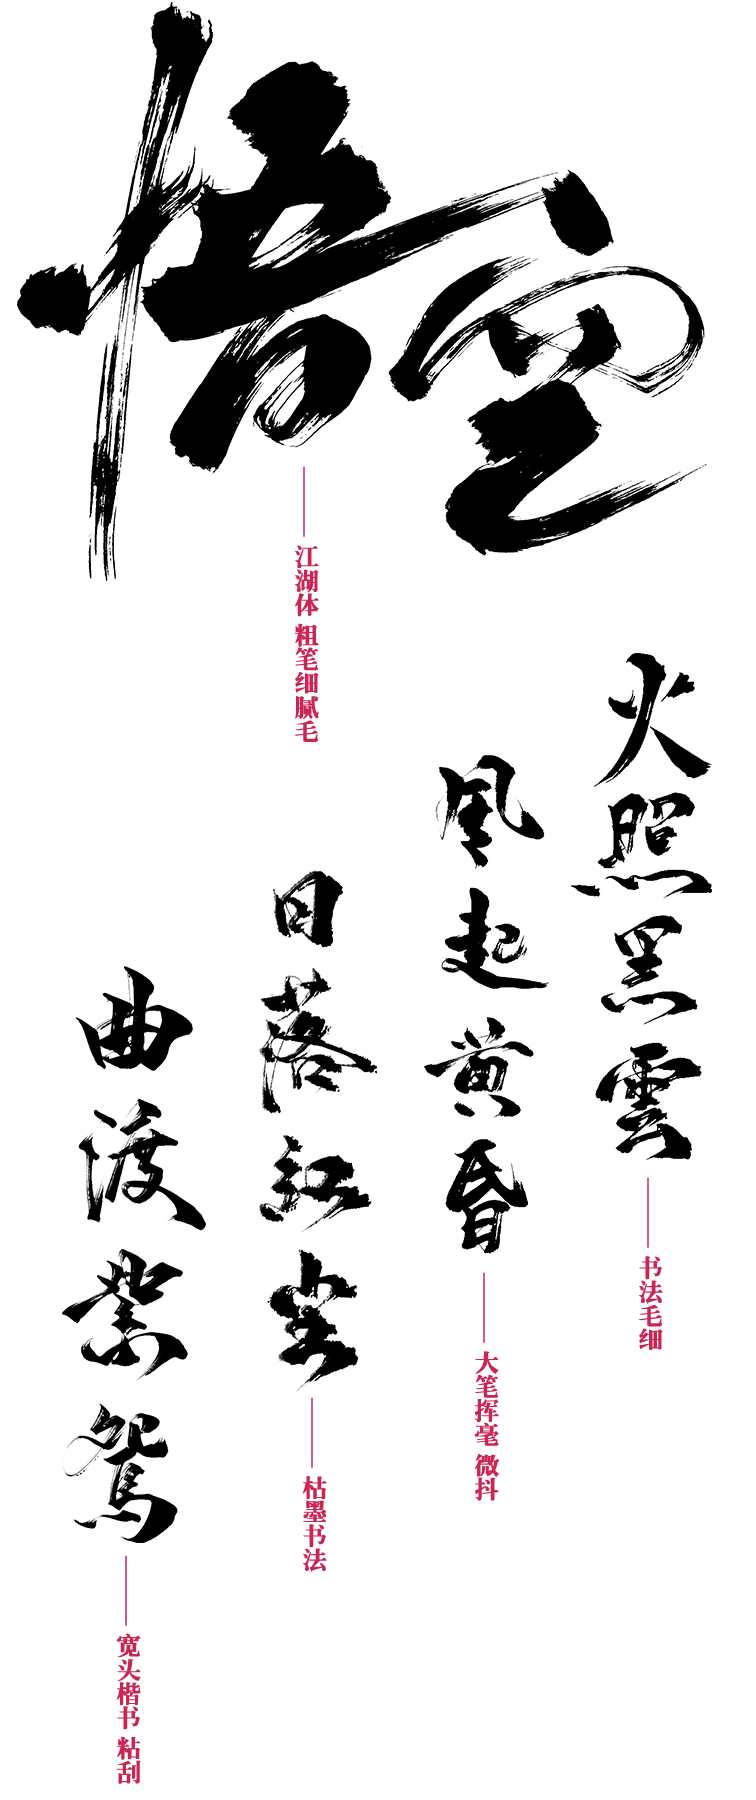 悟空
江湖体 粗笔细腻毛
火照黑雲
书法毛细
風起黄昏
大笔挥毫 微抖
日落红尘
枯墨书法
曲渡紫鴛
宽头楷书 粘刮